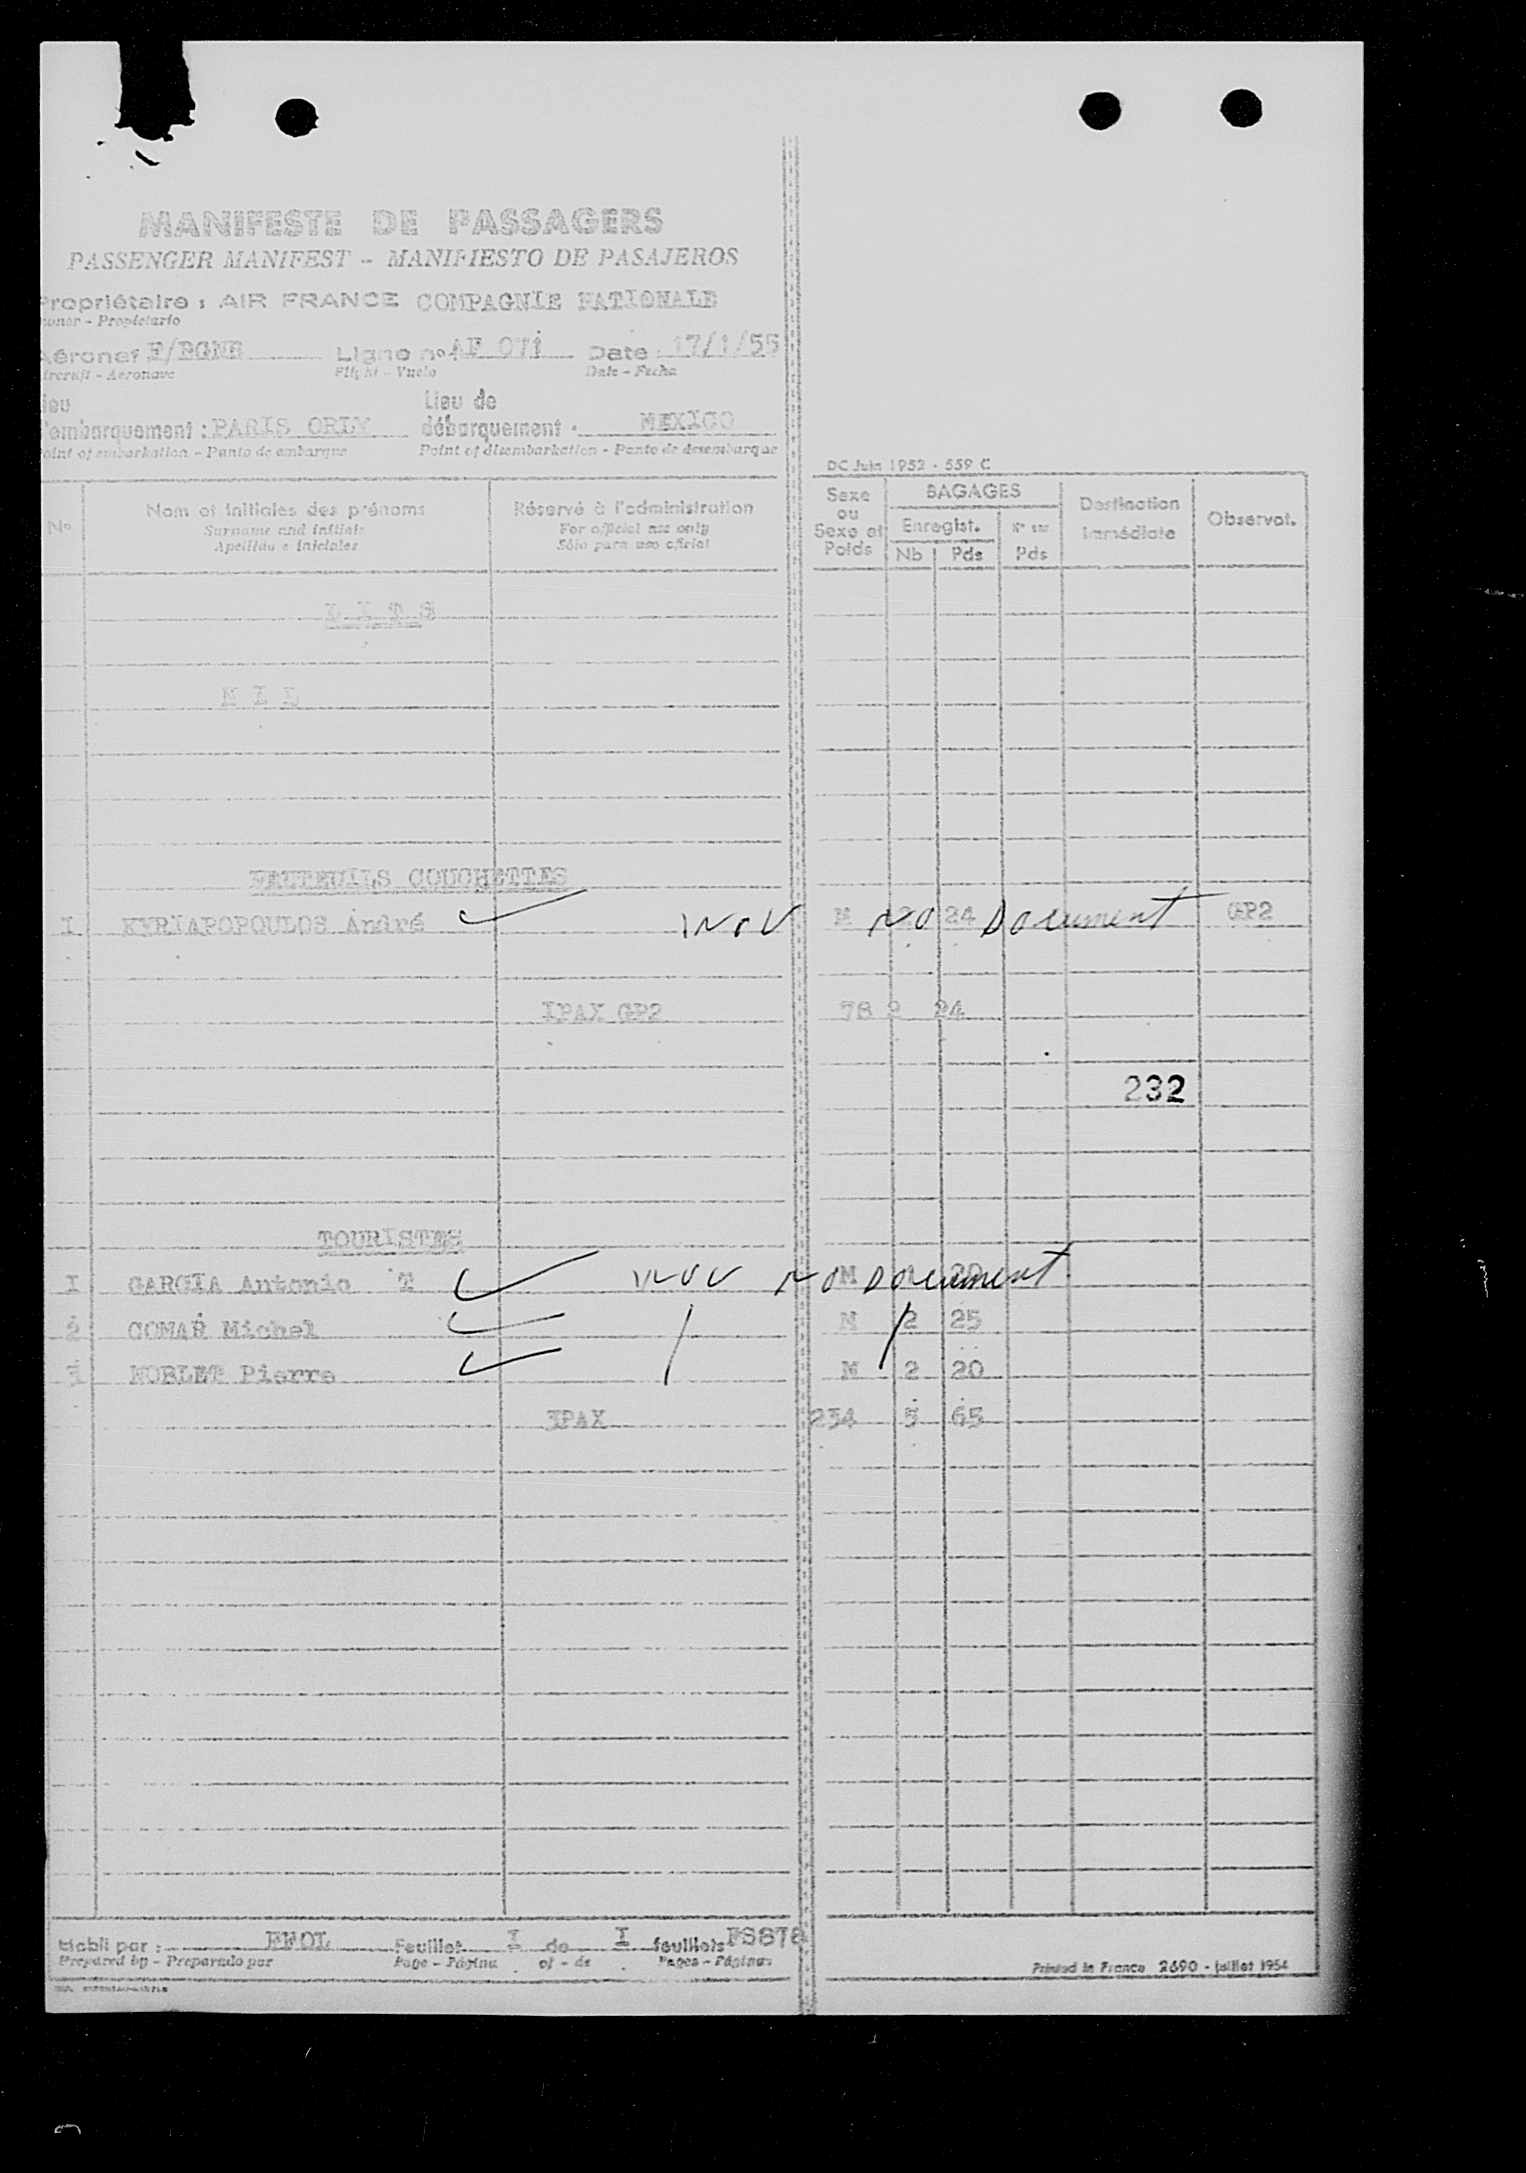 MANIFESTE DE PASSAGERS
PASSENGER MANIFEST - MANIFIESTO DE PASAJEROS
Propriétaire : AIR FRANCE COMPAGNIE NATIONALE
owner - Propietario
Aéronef F/BGNB Ligne n° AF 071 Date : 17/1/55
Aircraft - Aeronave Flight - Vuelo Date - Fecha
Lieu Lieu de
d'embarquement : PARIS ORLY débarquement : MEXICO
Point of embarkation - Punto de embarque Point of disembarkation - Punto de desembarque
DC Juin 1952 - 559 C
N° Nom et initiales des prénoms Réservé à l'administration
Surname and initials For official use only
Apellido e iniciales Sólo para uso oficial
Sexe ou Sexe et Poids BAGAGES Destination Immédiate Observat.
Enregist.
Nb Pds Pds
L I T S
N I L
FAUTEUILS COUCHETTES
I KYRIAPOPOULOS André INOV M 2 24 NO Document GP2
IPAX GP2 78 2 24
232
TOURISTES
I GARCIA Antonio T INOV NO Document M 1 20
2 COMAR Michel M 2 25
3 NOBLET Pierre M 2 20
3PAX 234 5 65
Etabli par : Feuillet I de I feuillets FS878
Prepared by - Preparado por Page - Página of - de Pages - Páginas
Printed in France 2690 - juillet 1954